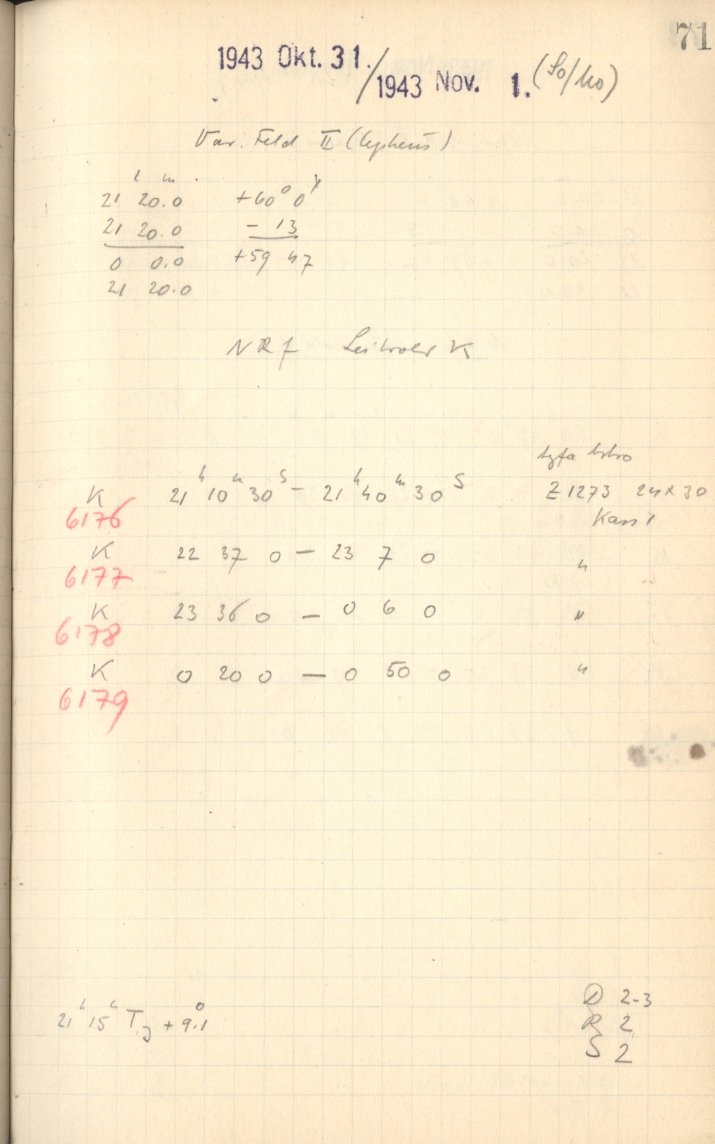 71
1943 Okt. 31. / 1943 Nov. 1. (So/Mo)
Var. Feld II (Cepheus)
h m
21 20.0 +60° 0'
21 20.0 - 13
0 0.0 +59 47
21 20.0
NRf Leitrohr K
Agfa Astro
K 21h 10m 30s - 21h 40m 30s Z1273 24x30
6176 Kass 1
K 22 37 0 — 23 7 0 "
6177
K 23 36 0 — 0 6 0 "
6178
K 0 20 0 — 0 50 0 "
6179
D 2-3
21h 15 T +9.1°
R 2
S 2